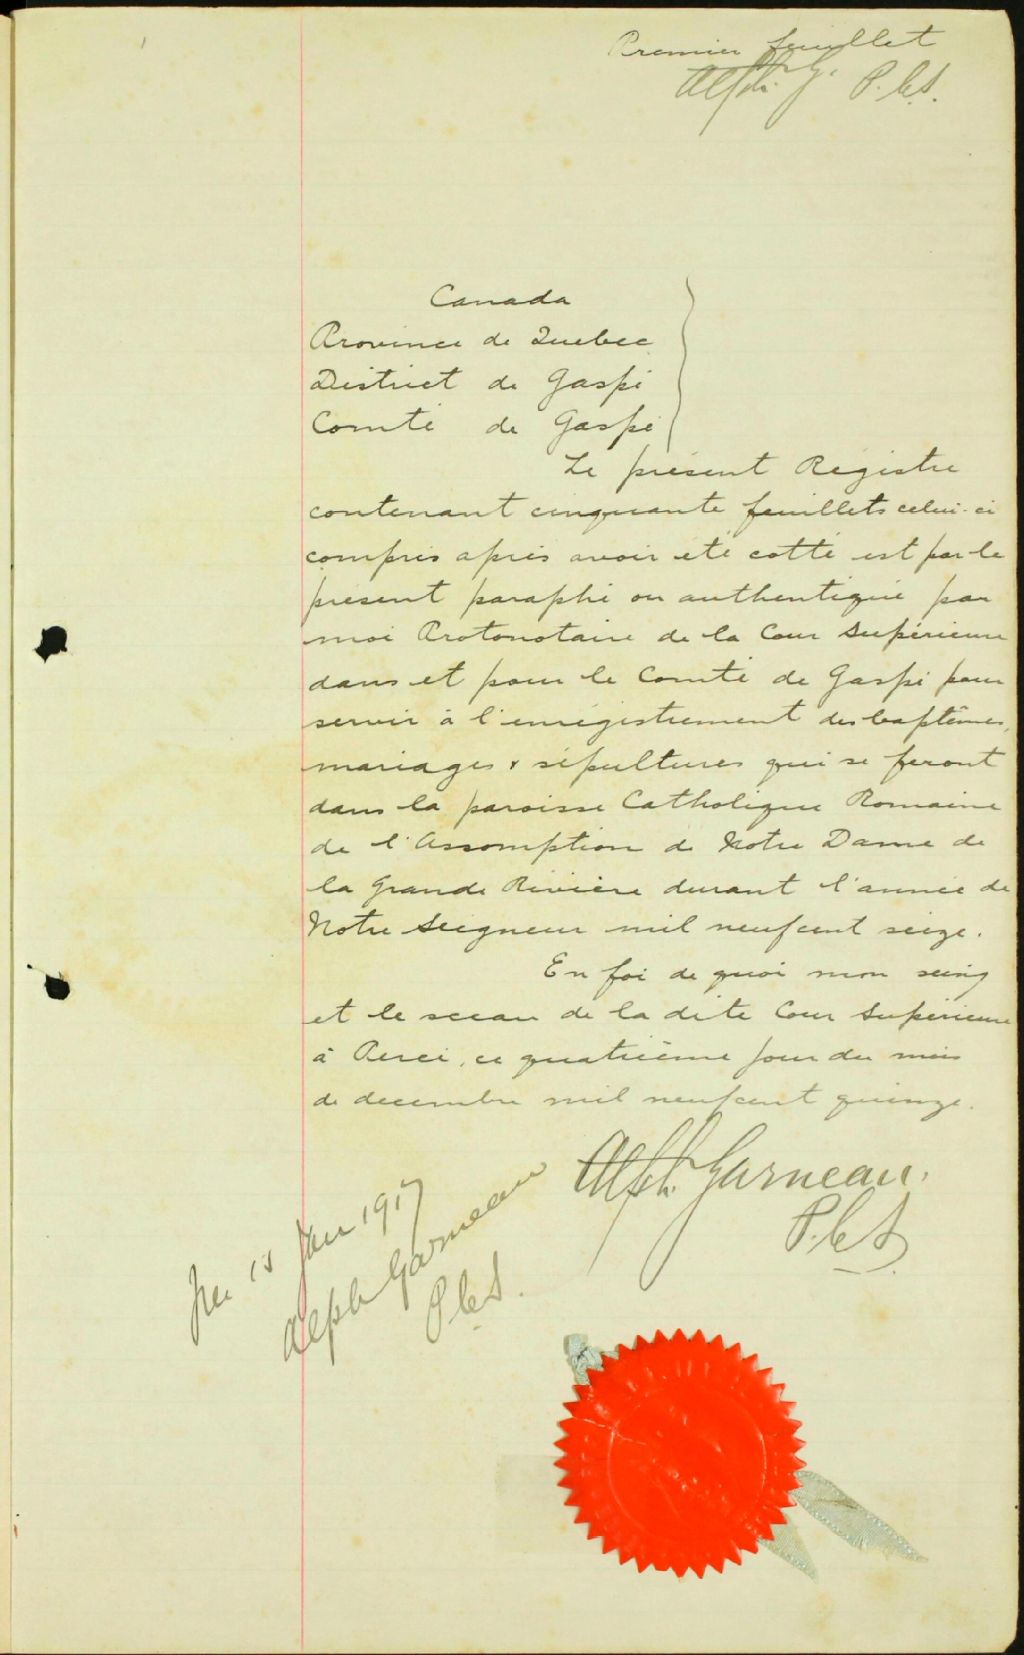 Premier feuillet
Alph. G. P.C.S.
Canada
Province de Quebec
District de Gaspé
Comté de Gaspé
Le présent Régistre
contenant cinquante feuillets celui-ci
compris après avoir été cotté est par le
présent paraphé ou authentiqué par
moi Protonotaire de la Cour Supérieure
dans et pour le Comté de Gaspé pour
servir à l'enrégistrement des baptêmes,
mariages & sépultures qui se feront
dans la paroisse Catholique Romaine
de l'Assomption de Notre Dame de
la Grande Rivière durant l'année de
Notre Seigneur mil neufcent seize.
En foi de quoi mon seing
et le sceau de la dite Cour Supérieure
à Percé, ce quatrième jour du mois
de decembre mil neufcent quinze.
Alph. Garneau.
P.C.S.
Jan 1917
Alph Garneau
P.C.S.